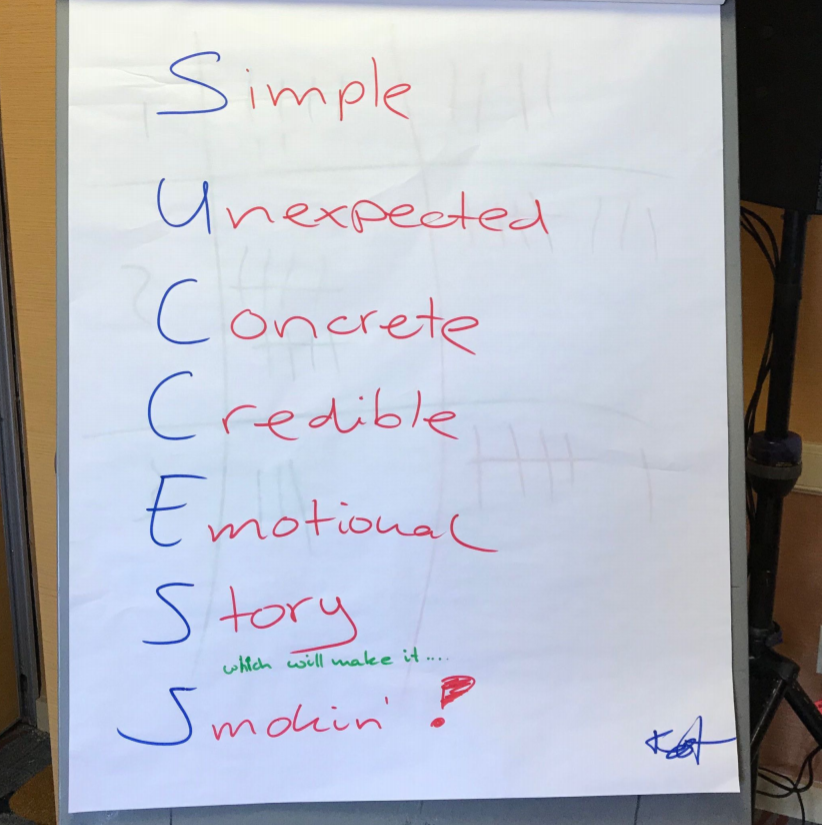 Simple
Unexpected
Concrete
Credible
Emotional
Story
which will make it....
Smokin' !